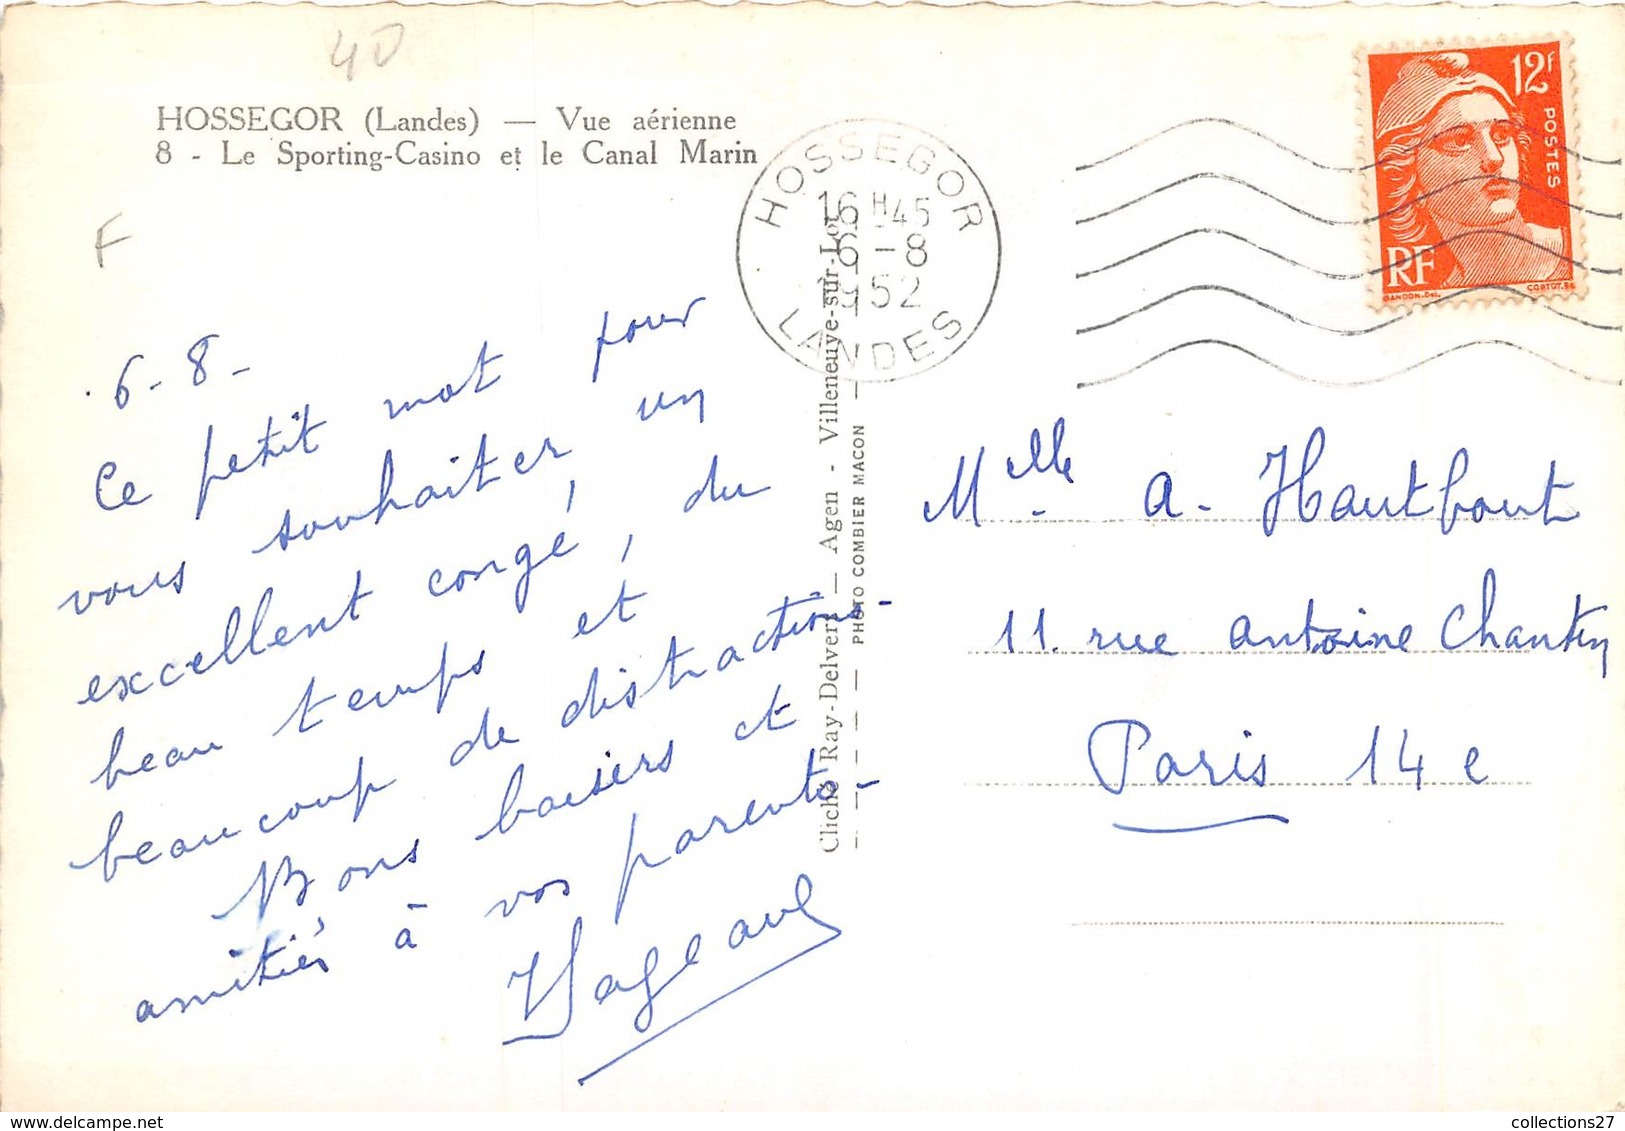 40
HOSSEGOR (Landes) — Vue aérienne
8 - Le Sporting-Casino et le Canal Marin
F
HOSSEGOR
16 H 45
6 - 8
1952
LANDES
12F
POSTES
RF
GANDON-Del.
CORTOT.SC
6-8-
Ce petit mot pour
vous souhaiter un
excellent congé, du
beau temps et
beaucoup de distractions-
Bons baisers et
amitiés à vos parents-
Cliché Ray-Delvert — Agen - Villeneuve-sur-Lot
PHOTO COMBIER MACON
Mlle A. Hautbout
11. rue Antoine Chantin
Paris 14e
collections27